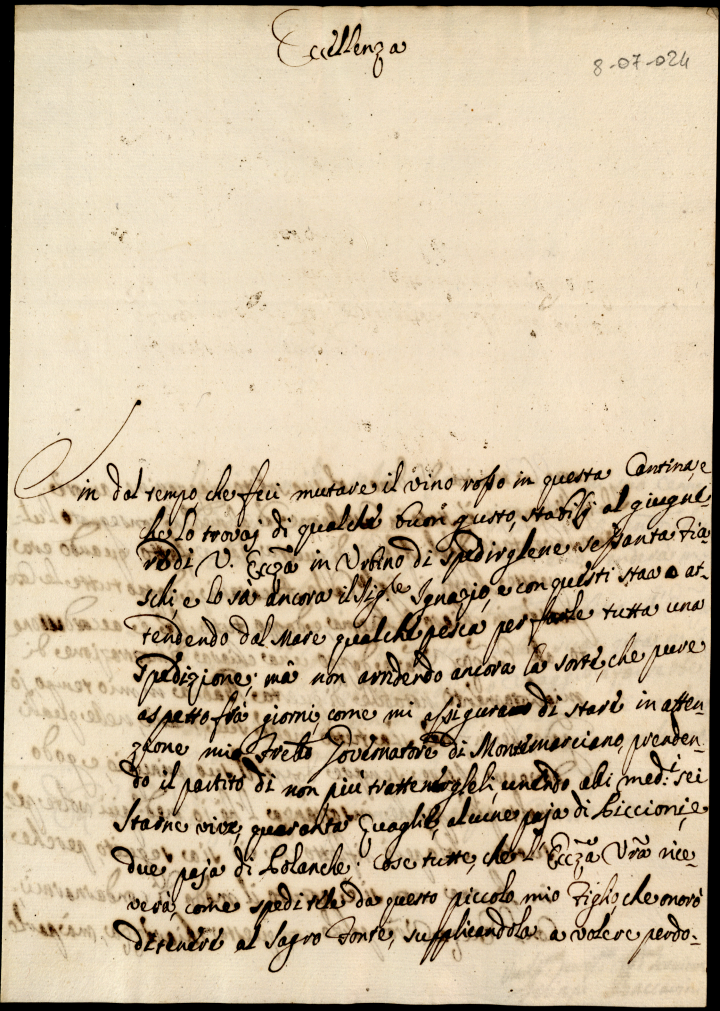 Eccellenza
8-07-024
Fin dal tempo, che feci mutare il vino rosso in questa Cantina, e
che lo trovai di qualche buon gusto, stabilij al giugne-
re di V. Ecc.za in Urbino di spedirglene sessanta fia-
schi e lo sà ancora il Sig.re Ignazio, e con questi stava at-
tendendo dal Mare qualche pesca per farle tutta una
spedizione; mà non arridendo ancora la sorte, che pure
aspetto frà giorni, come mi assigurano di stare in atten-
zione mio Frēllo Governatore di Montemarciano, prenden-
do il partito di non più trattenerglieli, unendo alli med.i sei
Starne vive, quaranta Quaglie, alcune paja di Piccioni, e
due paja di Polanche; Cose tutte, che l'Ecc.za Vrā rice-
verà, come speditele da questo piccolo mio Figlio, che onorò
di tenere al Sagro Fonte, supplicandola a volere perdo-